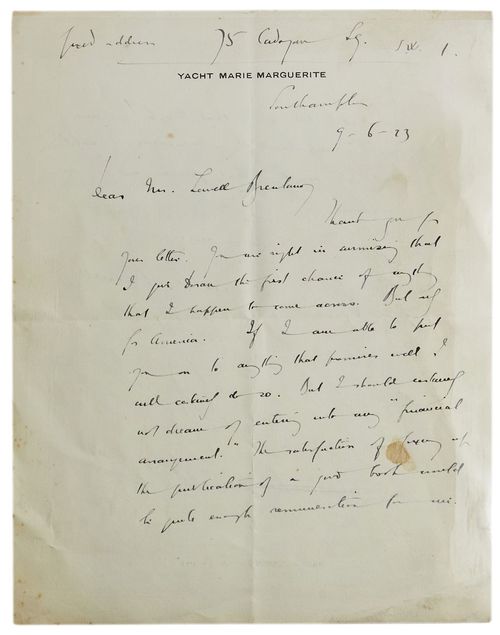 fixed address 75 Cadogan Sq. SW. 1.
YACHT MARIE MARGUERITE
Southampton
9-6-23
Dear Mr. Lowell Brentano,
Thank you for
your letter. You are right in surmising that
I give Doran the first chance of anything
that I happen to come across. But only
for America. If I am able to put
you on to anything that promises well, I
will certainly do so. But I should certainly
not dream of entering into any "financial
arrangement." The satisfaction of fixing up
the publication of a good book would
be quite enough remuneration for me.